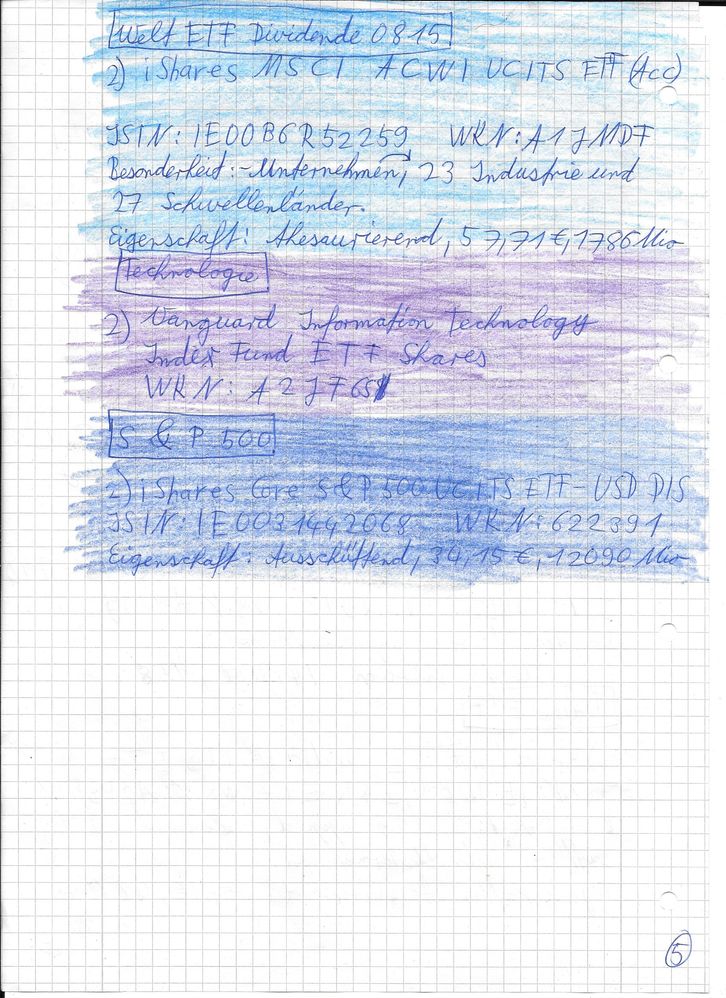 Welt ETF Dividende 08 15
2) iShares MSCI ACWI UCITS ETF (Acc)
ISIN: IE00B6R52259 WKN: A1JMDF
Besonderheit: - Unternehmen, 23 Industrie und
27 Schwellenländer.
Eigenschaft: Thesaurierend, 57,71 €, 1786 Mio
Technologie
2) Vanguard Information Technology
Index Fund ETF Shares
WKN: A2JF65
S & P 500
2) iShares Core S&P 500 UCITS ETF - USD DIS
ISIN: IE0031442068 WKN: 622391
Eigenschaft: Ausschüttend, 34,15 €, 12090 Mio
5